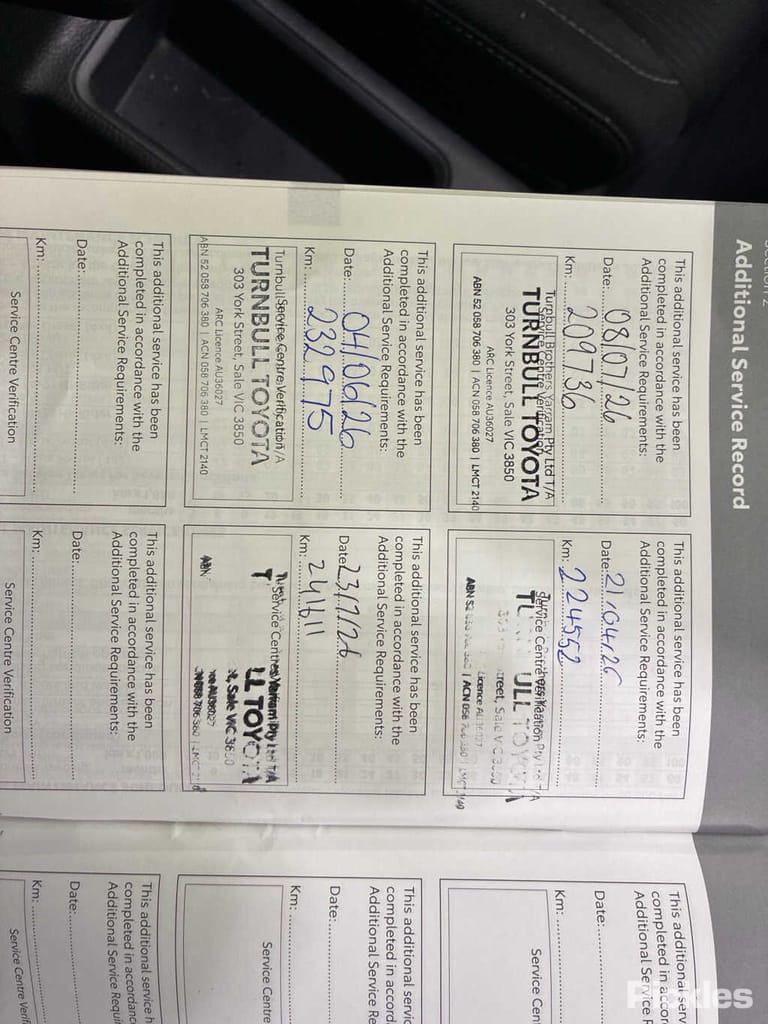 Section 2
Additional Service Record
This additional service has been
completed in accordance with the
Additional Service Requirements:
Date: 08/07/26
Km: 209736
Turnbull Brothers Yarram Pty Ltd T/A
Service Centre Verification
TURNBULL TOYOTA
303 York Street, Sale VIC 3850
ARC Licence AU36027
ABN 52 058 706 380 | ACN 058 706 380 | LMCT 2140
This additional service has been
completed in accordance with the
Additional Service Requirements:
Date: 21/04/26
Km: 224552
Service Centre Verification
ULL TOYOTA
Street, Sale VIC 3850
Licence
ABN 52 | ACN 058 706 380 | LMCT 2140
This additional serv
completed in accor
Additional Service R
Date:
Km:
Service Cen
This additional service has been
completed in accordance with the
Additional Service Requirements:
Date: 04/06/26
Km: 232975
Service Centre Verification
TURNBULL TOYOTA
303 York Street, Sale VIC 3850
ARC Licence AU36027
ABN 52 058 706 380 | ACN 058 706 380 | LMCT 2140
This additional service has been
completed in accordance with the
Additional Service Requirements:
Date: 23/7/26
Km: 241611
Service Centre Yarram Pty Ltd T/A
T LL TOYOTA
Sale VIC 3850
AU36027
ABN 058 706 380 | LMCT
This additional servic
completed in accord
Additional Service Re
Date:
Km:
Service Centre
This additional service has been
completed in accordance with the
Additional Service Requirements:
Date:
Km:
Service Centre Verification
This additional service has been
completed in accordance with the
Additional Service Requirements:
Date:
Km:
Service Centre Verification
This additional service h
completed in accordanc
Additional Service Requi
Date:
Km:
Service Centre Verifi
Pickles